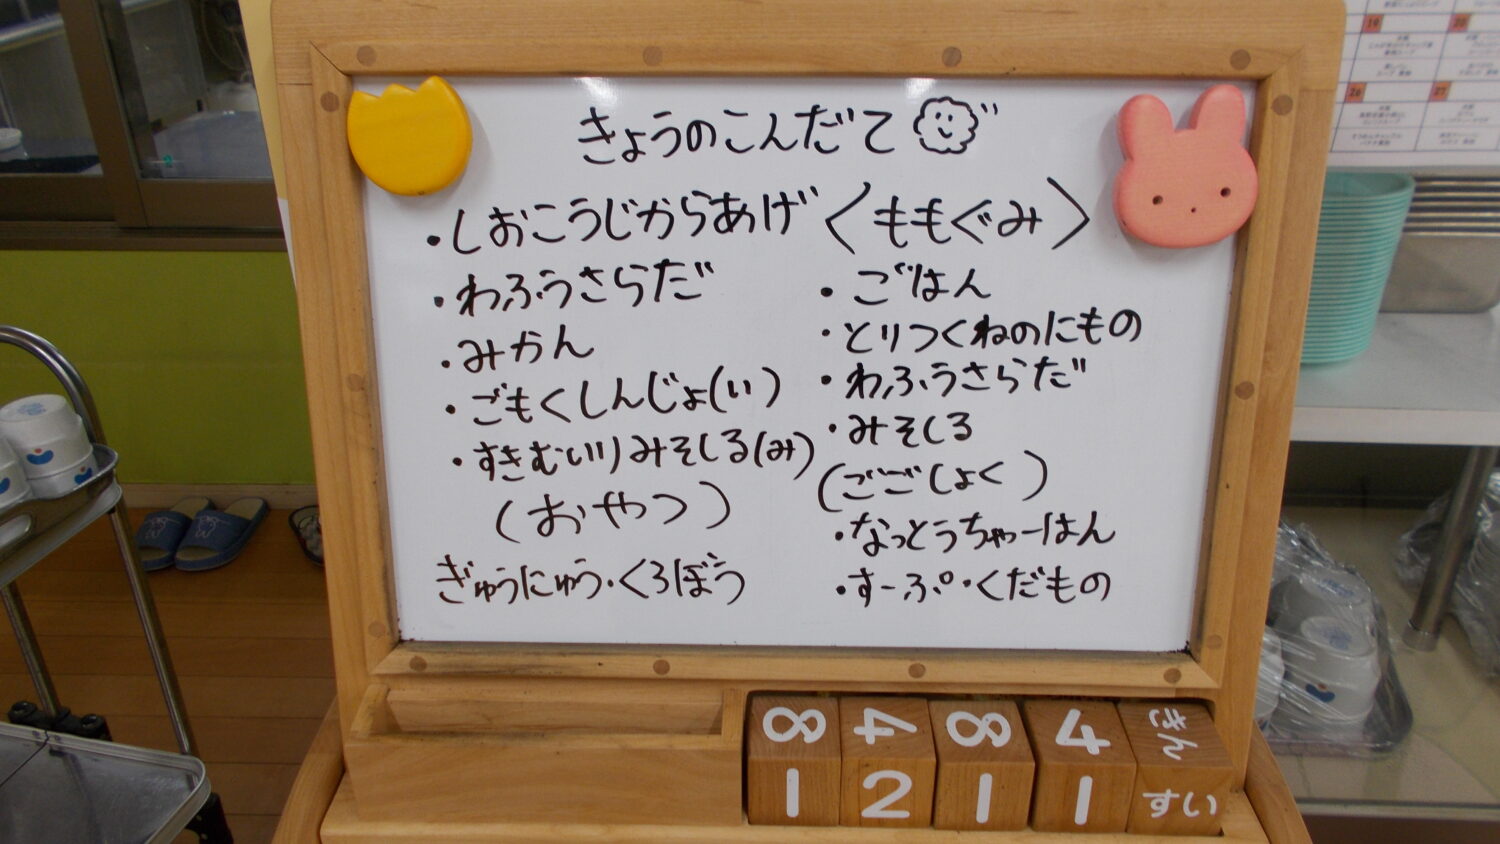 きょうのこんだて
・しおこうじからあげ
・わふうさらだ
・みかん
・ごもくしんじょ(い)
・すきむいりみそしる(み)
(おやつ)
ぎゅうにゅう・くろぼう
〈ももぐみ〉
・ごはん
・とりつくねのにもの
・わふうさらだ
・みそしる
(ごごしょく)
・なっとうちゃーはん
・すーぷ・くだもの
8 4 8 4 きん
1 2 1 1 すい
19 20
26 27